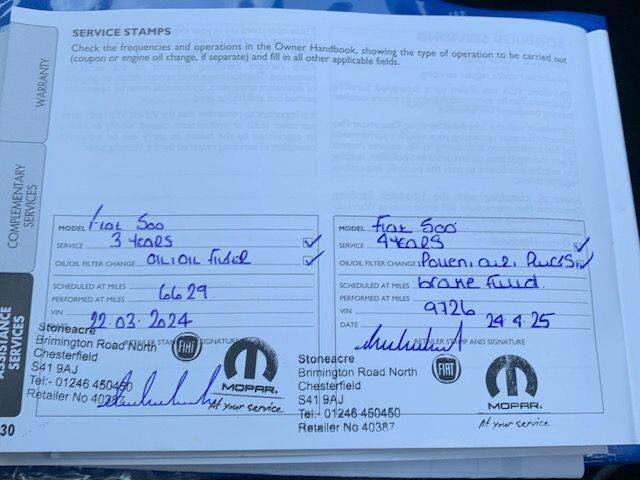 SERVICE STAMPS
Check the frequencies and operations in the Owner Handbook, showing the type of operation to be carried out
(coupon or engine oil change, if separate) and fill in all other applicable fields.
WARRANTY
COMPLEMENTARY SERVICES
ASSISTANCE SERVICES
30
MODEL Fiat 500
SERVICE 3 YEARS
OIL/OIL FILTER CHANGE OIL/OIL Filter
SCHEDULED AT MILES
PERFORMED AT MILES 6629
VIN
22.03.2024
RETAILER STAMP AND SIGNATURE
Stoneacre
Brimington Road North
Chesterfield
S41 9AJ
Tel:- 01246 450450
Retailer No 40387
FIAT
MOPAR.
At your service
MODEL Fiat 500
SERVICE 4 YEARS
OIL/OIL FILTER CHANGE Pollen, OIL, PLUGS
SCHEDULED AT MILES brake fluid
PERFORMED AT MILES
VIN 9726
DATE 24.4.25
RETAILER STAMP AND SIGNATURE
Stoneacre
Brimington Road North
Chesterfield
S41 9AJ
Tel:- 01246 450450
Retailer No 40387
FIAT
MOPAR.
At your service